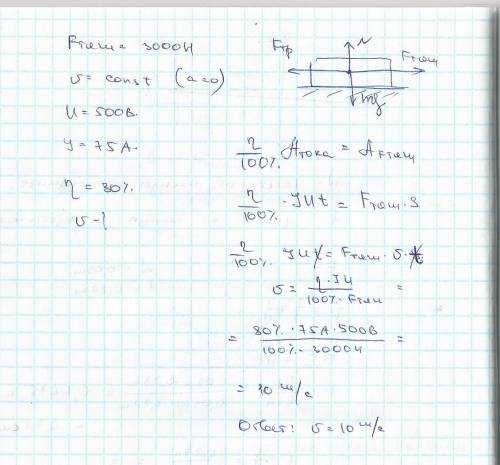 Fтяги = 3000Н
v = const (a=0)
U = 500В.
J = 75А.
η = 80%.
v - ?
Fтр
N
Fтяги
mg
η/100% Aтока = AFтяги
η/100% · JUt = Fтяги · S
η/100% JUt = Fтяги · v · t
v = η·JU / 100%·Fтяги =
= 80%·75А·500В / 100%·3000Н =
= 10 м/с
Ответ: v = 10 м/с